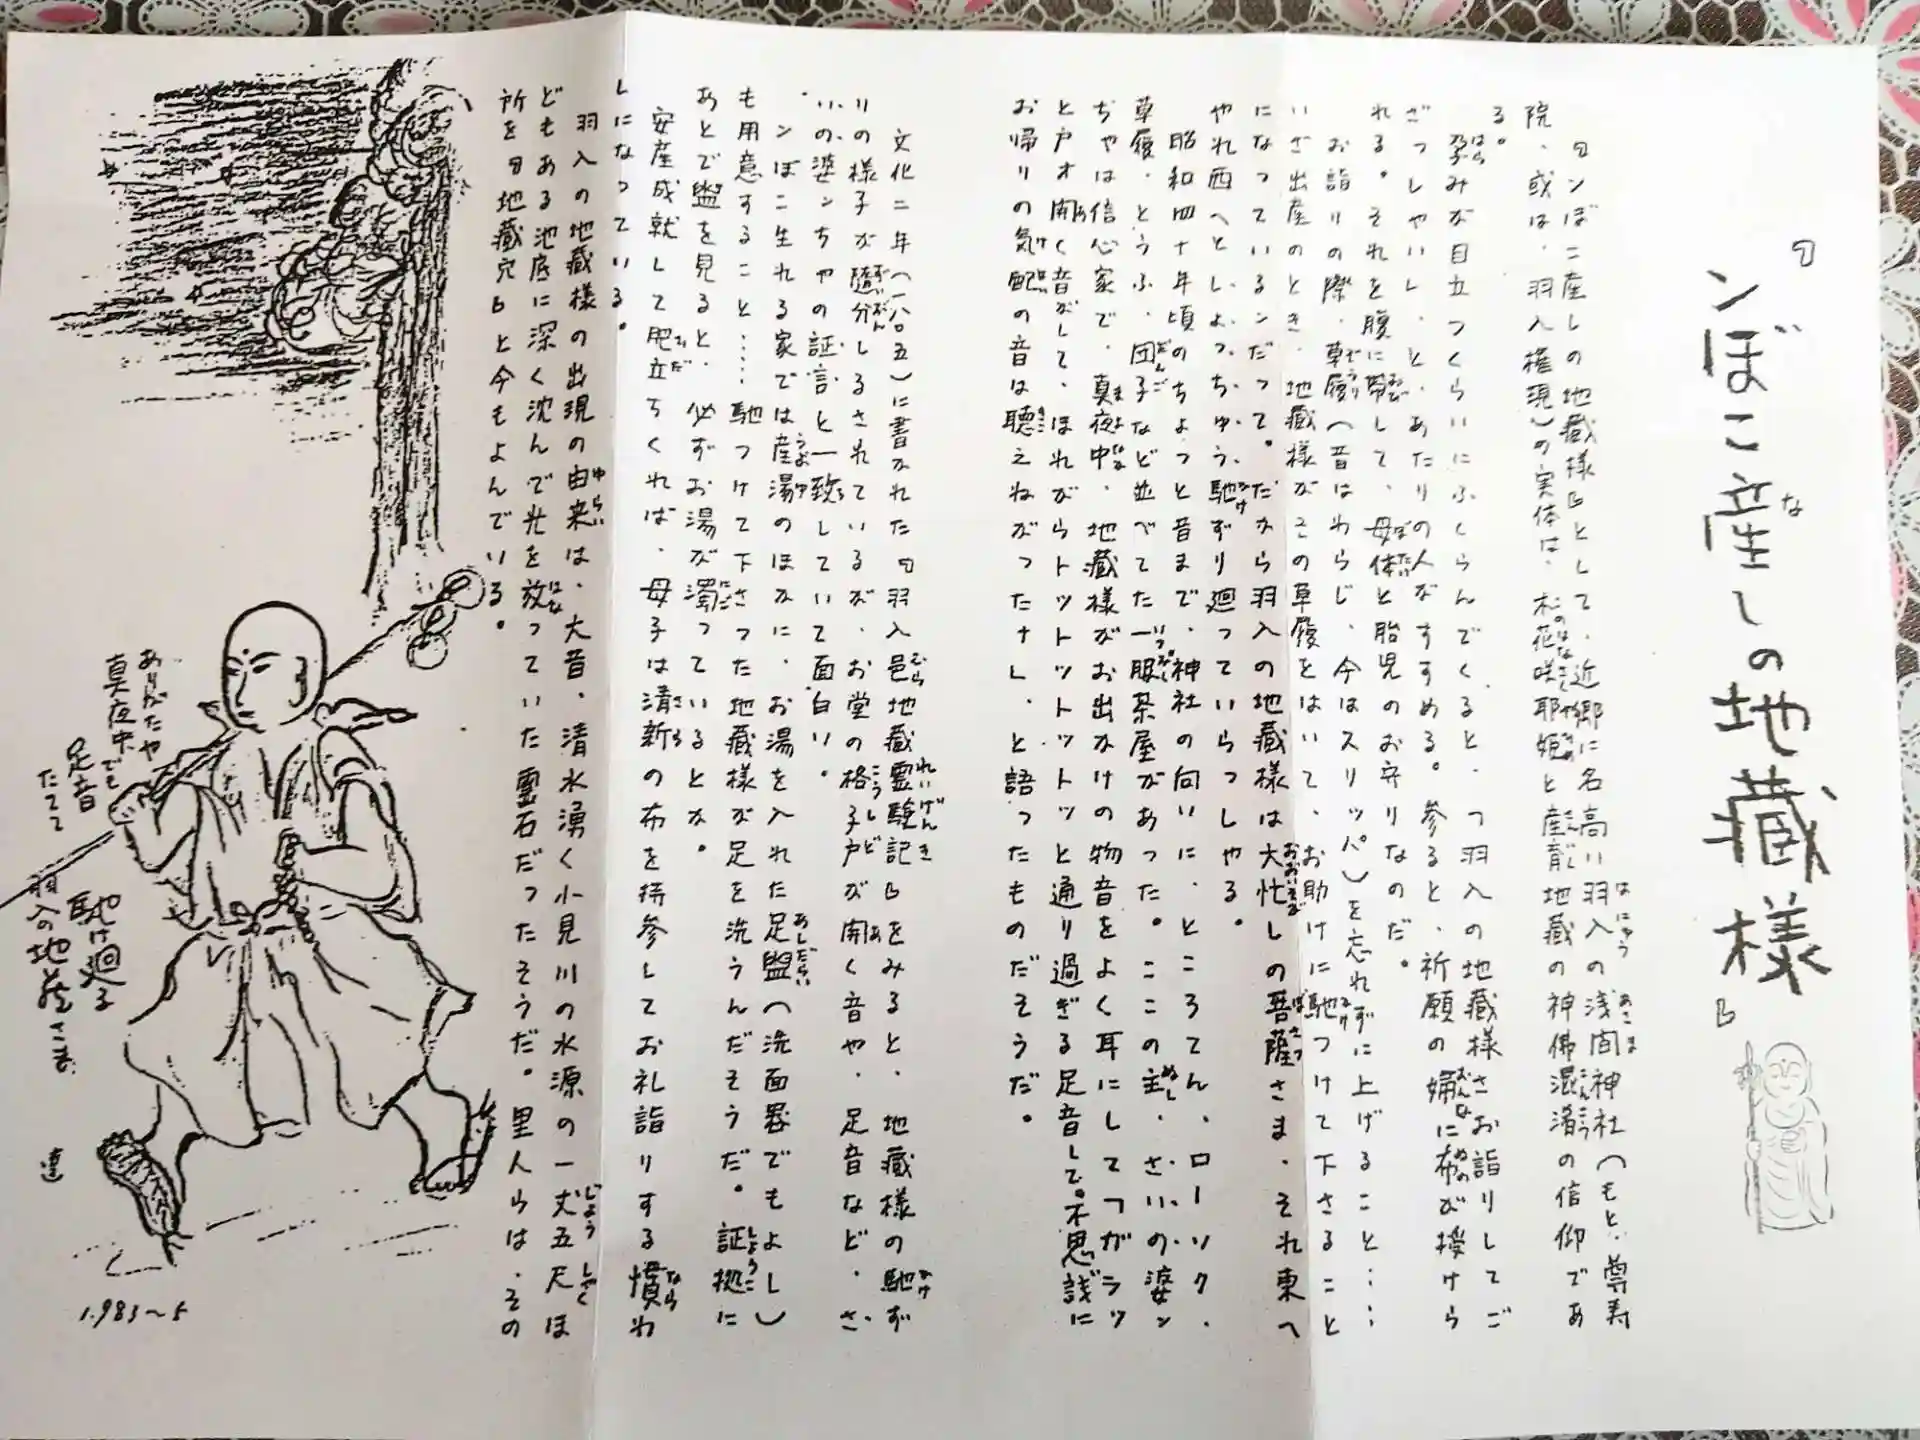 『ンぼこ産しの地蔵様』
『ンぼこ産しの地蔵様』として、近郷に名高い羽入の浅間神社（もと、尊寿
院、或は、羽入権現）の実体は、木花咲耶姫と産育地蔵の神佛混淆の信仰であ
る。
孕みが目立つくらいにふくらんでくると、「羽入の地蔵様さお詣りしてご
ざっしゃい」、と、あたりの人がすすめる。参ると、祈願の婦に布が授けら
れる。それを腹に帯して、母体と胎児のお守りなのだ。
お詣りの際、草履（昔はわらじ、今はスリッパ）を忘れずに上げること……
いざ出産のとき、地蔵様がこの草履をはいて、お助けに馳つけて下さること
になっているンだって。だから羽入の地蔵様は大忙しの菩薩さま、それ東へ
やれ西へとしょっちゅう馳ずり廻っていらっしゃる。
昭和四十年頃のちょっと昔まで、神社の向いに、ところてん、ローソク、
草履、とうふ、団子など並べた一服茶屋があった。ここの主、さいの婆ン
ちゃは信心家で、真夜中、地蔵様がお出かけの物音をよく耳にしてつがラッ
と戸オ開く音がして、ほれがらトットットットットッと通り過ぎる足音して。不思議に
お帰りの気配の音は聴えねがったナし、と語ったものだそうだ。
文化二年（一八〇五）に書かれた『羽入邑地蔵霊験記』をみると、地蔵様の馳ず
りの様子が随分しるされているが、お堂の格子戸が開く音や、足音など、さ
いの婆ンちゃの証言と一致していて面白い。
ンぼこ生れる家では産湯のほかに、お湯を入れた足盥（洗面器でもよし）
も用意すること……馳つけて下さった地蔵様が足を洗うんだそうだ。証拠に
あとで盥を見ると、必ずお湯が濁っているとか。
安産成就して肥立ちくれば、母子は清新の布を持参してお礼詣りする慣わ
しになっている。
羽入の地蔵様の出現の由来は、大昔、清水湧く小見川の水源の一丈五尺ほ
どもある池底に深く沈んで光を放っていた霊石だったそうだ。里人らは、その
所を『地蔵穴』と今もよんでいる。
ありがたや
真夜中でも
足音
たてて
馳け廻る
羽入の地蔵さま
達
1.983~5